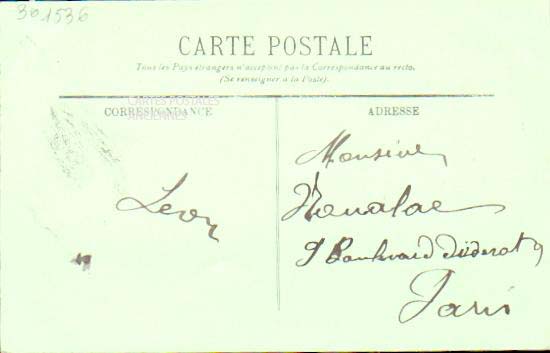 301536
CARTE POSTALE
Tous les Pays étrangers n'acceptent pas la Correspondance au recto.
(Se renseigner à la Poste).
CARTES POSTALES
ANCIENNES
CORRESPONDANCE
ADRESSE
Léon
Monsieur
9 Boulevard Diderot 9
Paris